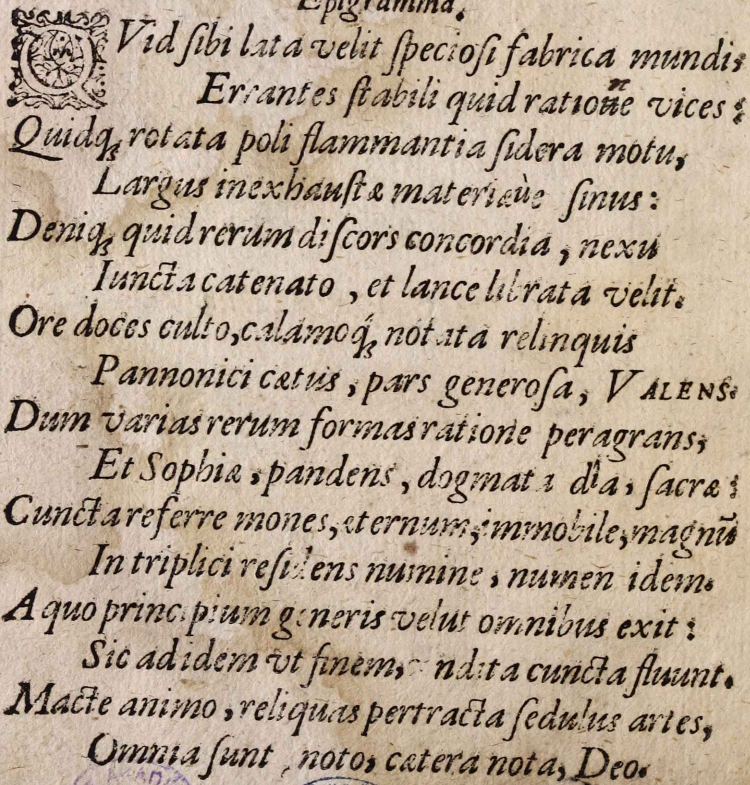 Epigramma.
QVid sibi lata velit speciosi fabrica mundi;
Errantes stabili quid ratione vices:
Quidq́; rotata poli flammantia sidera motu,
Largus inexhaustæ materiæùe sinus:
Deniq́; quid rerum discors concordia, nexu
Iuncta catenato, et lance librata velit.
Ore doces culto, calamoq́; notata relinquis
Pannonici cætus, pars generosa, VALENS.
Dum varias rerum formas ratione peragrans,
Et Sophiæ, pandens, dogmata dia, sacræ:
Cuncta referre mones, æternum, immobile, magnū
In triplici residens numine, numen idem.
A quo principium generis velut omnibus exit:
Sic ad idem vt finem, condita cuncta fluunt.
Macte animo, reliquas pertracta sedulus artes,
Omnia sunt, noto, cætera nota, Deo.